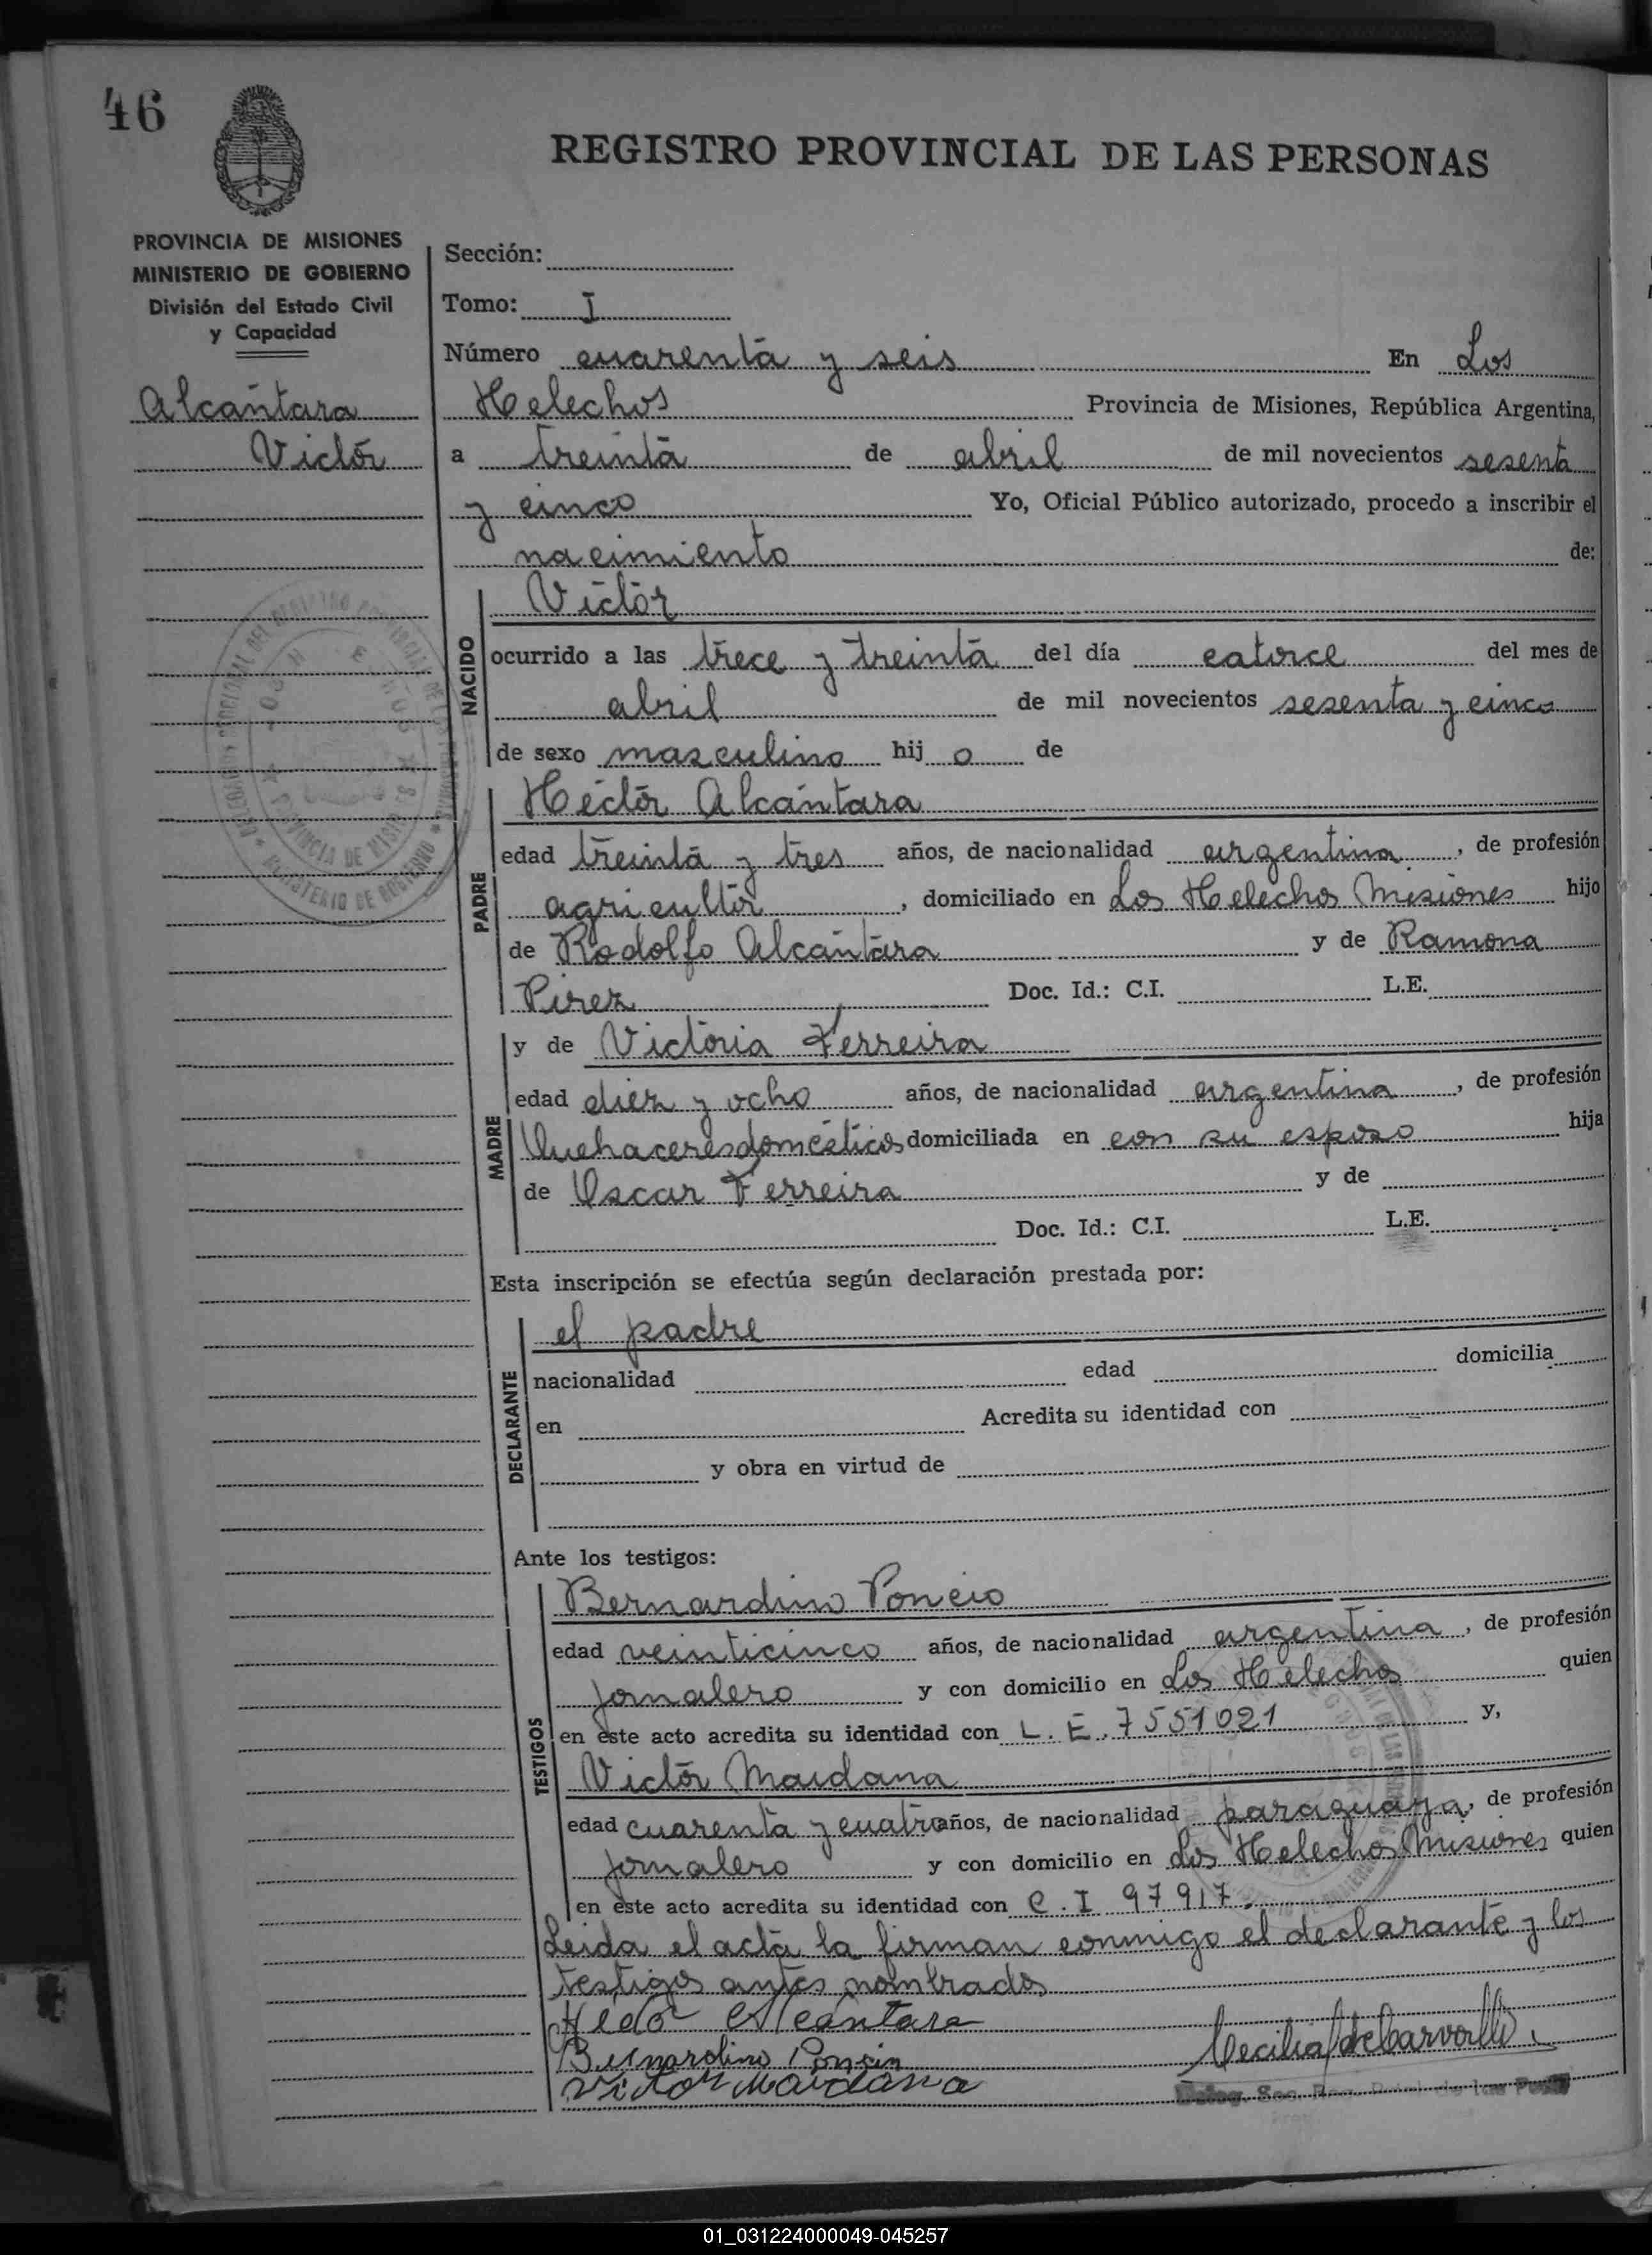 46
REGISTRO PROVINCIAL DE LAS PERSONAS
PROVINCIA DE MISIONES
MINISTERIO DE GOBIERNO
División del Estado Civil
y Capacidad
Alcántara
Victór
Sección:
Tomo: I
Número cuarenta y seis En Los
Helechos Provincia de Misiones, República Argentina,
a treinta de abril de mil novecientos sesenta
y cinco Yo, Oficial Público autorizado, procedo a inscribir el
nacimiento de:
NACIDO
Victór
ocurrido a las trece y treinta del día catorce del mes de
abril de mil novecientos sesenta y cinco
de sexo masculino hij o de
PADRE
Héctór Alcántara
edad treinta y tres años, de nacionalidad argentina, de profesión
agricultór, domiciliado en Los Helechos Misiones hijo
de Rodolfo Alcántara y de Ramona
Pirez Doc. Id.: C.I. L.E.
MADRE
y de Victoria Ferreira
edad diez y ocho años, de nacionalidad argentina, de profesión
Quehaceres domcéticos domiciliada en con su esposo hija
de Oscar Ferreira y de
Doc. Id.: C.I. L.E.
Esta inscripción se efectúa según declaración prestada por:
DECLARANTE
el padre
nacionalidad edad domicilia
en Acredita su identidad con
y obra en virtud de
Ante los testigos:
TESTIGOS
Bernardino Poncio
edad veinticinco años, de nacionalidad argentina, de profesión
Jornalero y con domicilio en Los Helechos quien
en este acto acredita su identidad con L. E. 7551021 y,
Victór Maidana
edad cuarenta y cuatro años, de nacionalidad paraguaya, de profesión
Jornalero y con domicilio en Los Helechos Misiones quien
en este acto acredita su identidad con C. I 97917.
Leida el acta la firman conmigo el declarante y los
testigos antes nombrados
Hector Alcántara
Bernardino Poncio
Victor Maidana
Cecilia de Carvallo
PROVINCIA DE MISIONES
MINISTERIO DE GOBIERNO
01_031224000049-045257